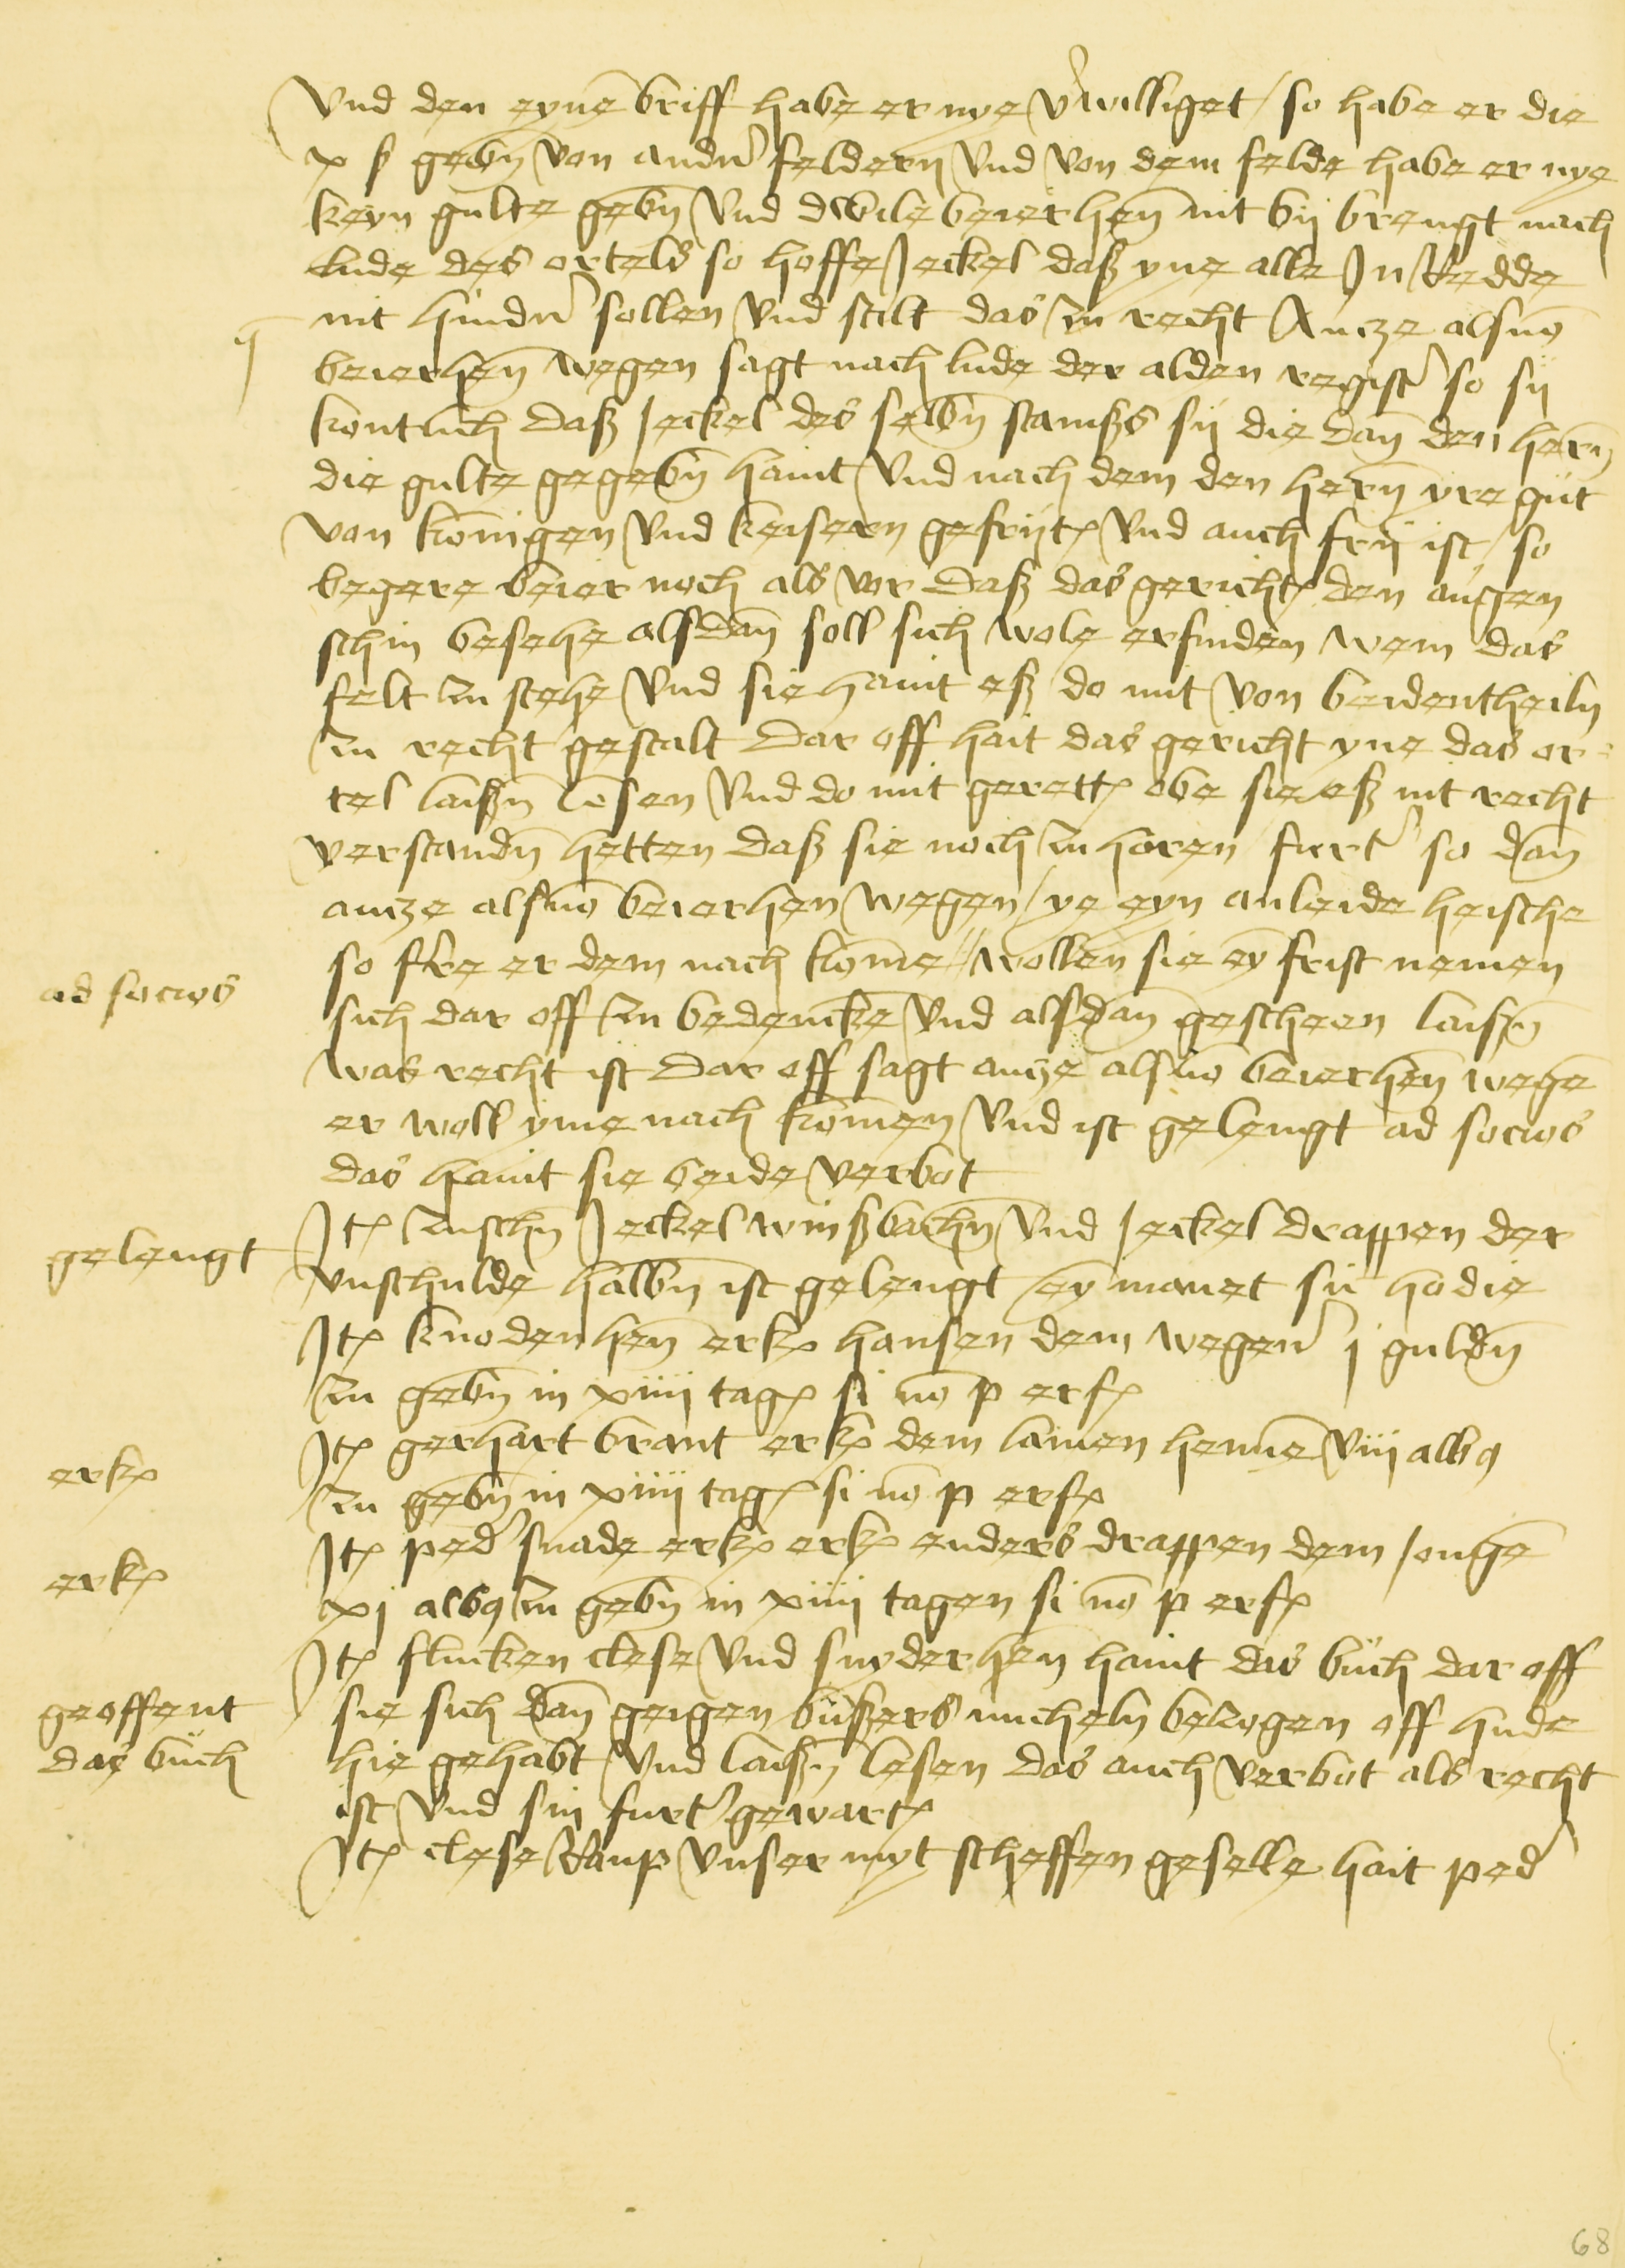 Vnd den eyne̅ briff habe er nye v'williget / so habe er die
x ß gebn̅ von andn' feldern vnd von dem felde habe er nye
keyn gulte gebn̅ vnd dwile beierhen̅ nit bÿ brengt nach
lude des ortels so hoffe Jeckel daß yne alle Jn redde
nit hindn' sollen vnd stelt das zu recht Ancze als mo̅
beierhen̅ wegen sagt nach lude der alden regist' so sÿ
kontlich daß Jeckel des selbn̅ stamßs sÿ die dan̅ den hern̅
die gulte gegebn̅ haint vnd nach dem den hern̅ yre gut
von konigen vnd keisern gefrÿt vnd auch frÿ ist / so
begere beier noch als vor daß das gericht den augen
schin besehe alsdan̅ soll sich wole erfinden wem das
felt zu stehe vnd sie haint eß do mit von beidentheiln
zu recht gestalt Dar off hait das gericht yne das or-
tel laißn̅ lesen vnd do mit gerett obe sie eß nit recht
verstandn̅ hetten daß sie noch zu horen furt' so dan̅
ancze als mo̅ beierhen wegen / ye eyn anleide heische
so sre er dem nach kome̅ // wollen sie ey̅ frist nemen
ad socios
sich dar off zu bedencke̅ vnd alsdan̅ gescheen laißn̅
was recht ist Dar off sagt ancze als mo̅ beierhen̅ wege̅
er woll yme nach komen̅ vnd ist gelengt ad socios
das haint sie beide verbot
Jt̅ zuschn̅ Jeckel winßbachn̅ vnd Jeckel drappen der
gelengt
vnschulde halbn̅ ist gelengt ey̅ manet sii hodie
Jt̅ knodenhen̅ erk̅ hansen dem wegen' j guldn̅
zu gebn̅ in xiiii tag̅ si no̅ p erf̅
Jt̅ gerhart brant erk̅ dem lamen henne̅ viii albꝯ
erk̅
zu gebn̅ in xiiii tag̅ si no̅ p erf̅
Jt̅ ped' snade erk̅ erk̅ enders drappen dem Jonge̅
erk̅
xj albꝯ zu gebn̅ in xiiii tagen si no̅ p erf̅
Jt̅ flucken clese vnd snyderhen̅ haint das buch dar off
geoffent
sie sich dan̅ geigen bußers micheln bezogen off hude
das buch
hie gehabt vnd laißn̅ lesen das auch verbot als recht
ist vnd sin furt' gewart̅
Jt̅ clese raup vnser myt scheffen geselle hait ped'
68